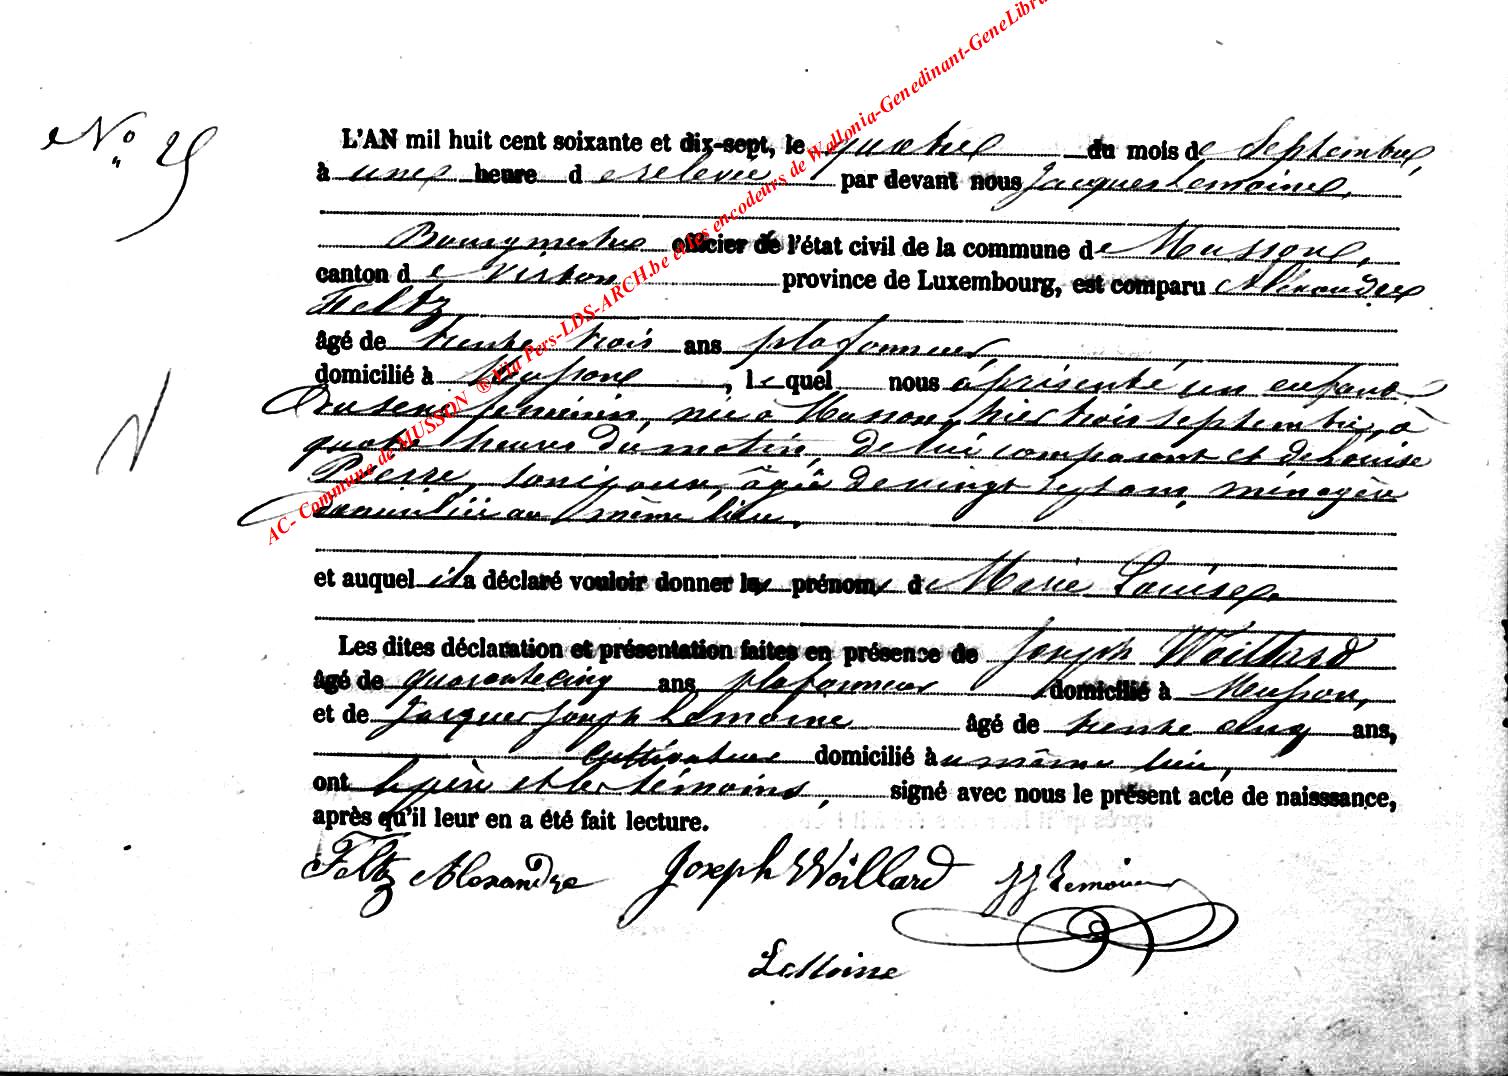 N° 25
L'AN mil huit cent soixante et dix-sept, le quatre du mois de Septembre,
à une heure de relevée par devant nous Jacques Lemoine,
Bourgmestre officier de l'état civil de la commune de Musson,
canton de Virton province de Luxembourg, est comparu Alexandre
Feltz,
âgé de trente trois ans plafonneur,
domicilié à Musson, lequel nous a présenté un enfant
du sexe féminin, née à Musson, hier trois septembre, à
quatre heures du matin, de lui comparant et de Louise
Pierre, son épouse, âgée de vingt sept ans, ménagère
domiciliée au même lieu,
et auquel il a déclaré vouloir donner les prénoms de Marie Louise.
Les dites déclaration et présentation faites en présence de Joseph Woillard
âgé de quarante cinq ans plafonneur domicilié à Musson,
et de Jacques Joseph Lemoine âgé de trente cinq ans,
Cultivateur domicilié au même lieu,
ont le père et les témoins, signé avec nous le présent acte de naisssance,
après qu'il leur en a été fait lecture.
Feltz Alexandre Joseph Woillard JJ Lemoine
LeMoine
AC- Commune de MUSSON ® Via Pers-LDS-ARCH.be et les encodeurs de Wallonia-Genedinant-GeneLibr